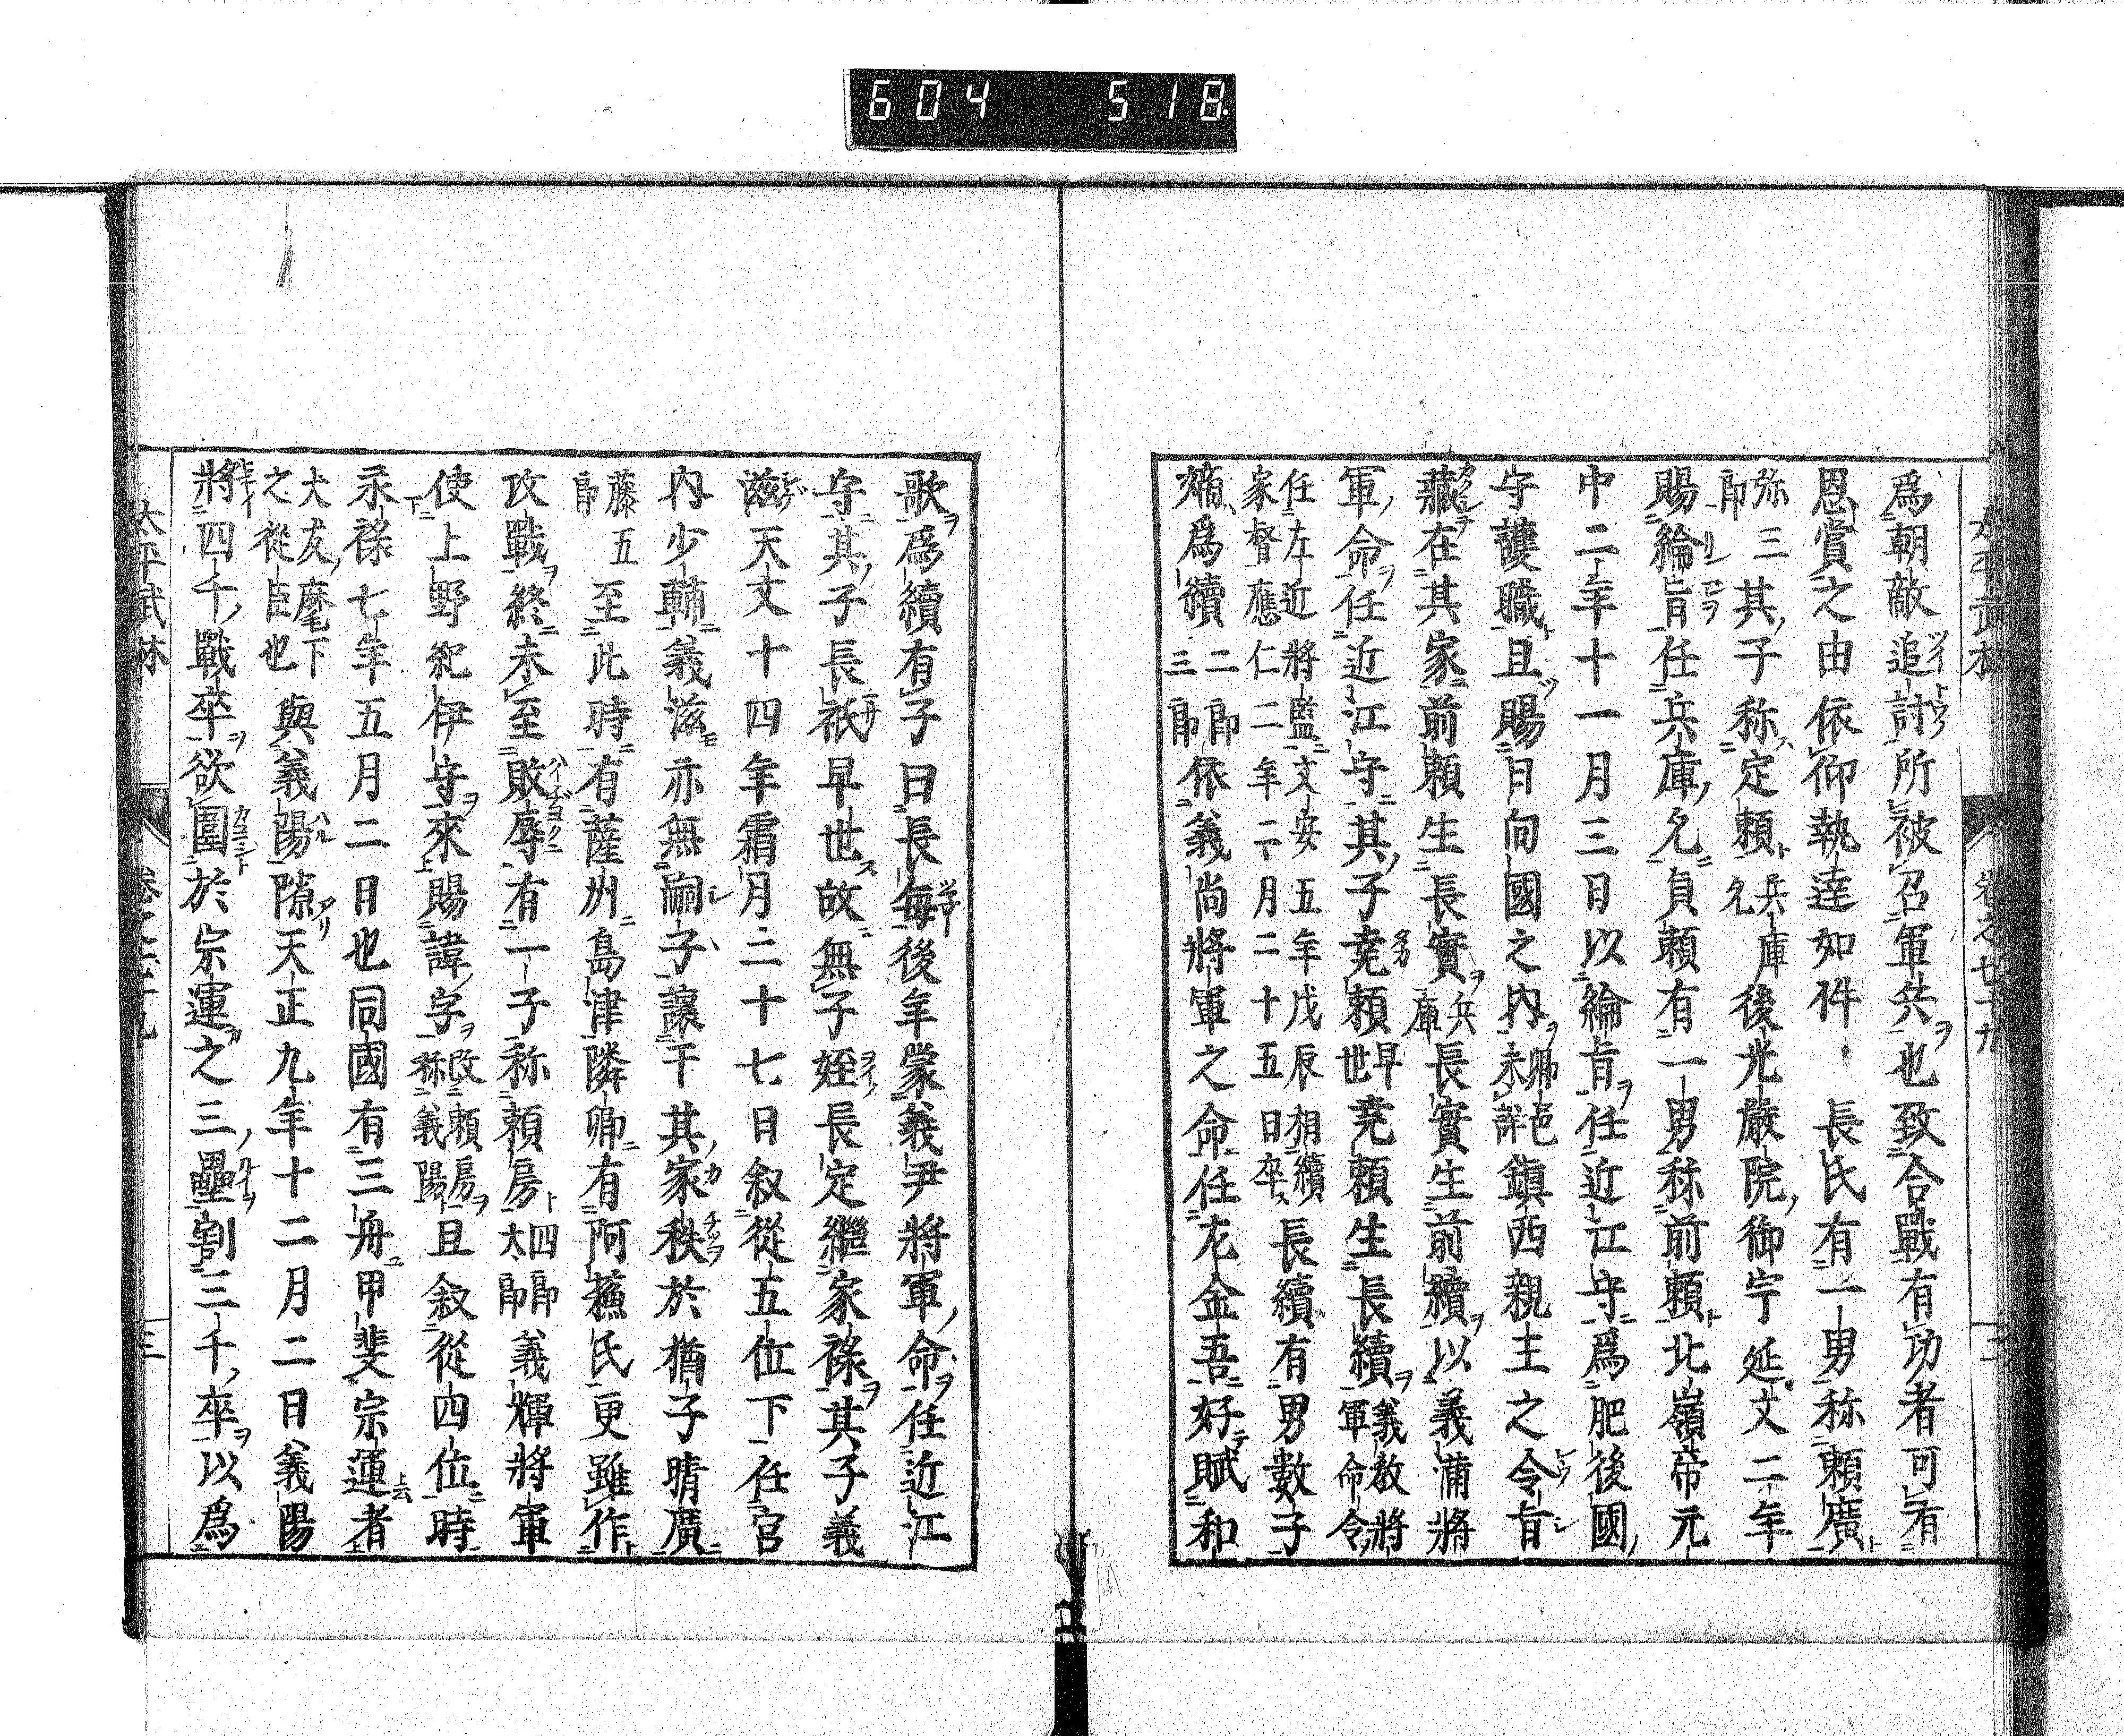 604 518
爲朝敵追討所被召軍兵也致合戰有功者可有
恩賞之由依仰執達如件 長氏有一男称頼廣
弥三郎其子称定頼兵庫允後光嚴院御宇延文二年
賜綸旨任兵庫允貞頼有一男称前頼北嶺帝元
中二年十一月三日以綸旨任近江守爲肥後國
守護職且賜日向國之内郷邑未詳鎮西親王之令旨
藏在其家前頼生長實兵庫長實生前續以義滿將
軍命任近江守其子尭頼早世尭頼生長續義教將軍命令
任左近將監文安五年戊辰相續家督應仁二年二月二十五日卒長續有男數子
嫡爲續二郎三郎依義尚將軍之命任左金吾好賦和
歌爲續有子曰長毎後年蒙義尹將軍命任近江
守其子長祗早世故無子姪長定繼家祿其子義
滋天文十四年霜月二十七日叙從五位下任宮
内少輔義滋亦無嗣子讓干其家秩於猶子晴廣
藤五郎至此時有薩州島津隣卿有阿蘇氏更雖作
攻戰終未至敗辱有一子称頼房四郎太郎義輝將軍
使上野紀伊守來賜諱字改頼房称義陽且叙從四位時
永祿七年五月二日也同國有三舟甲斐宗運者
大友麾下之從臣也與義陽隙天正九年十二月二日義陽
將四千戰卒欲圍於宗運之三壘割三千卒以爲
太平武林 卷之廿九 三